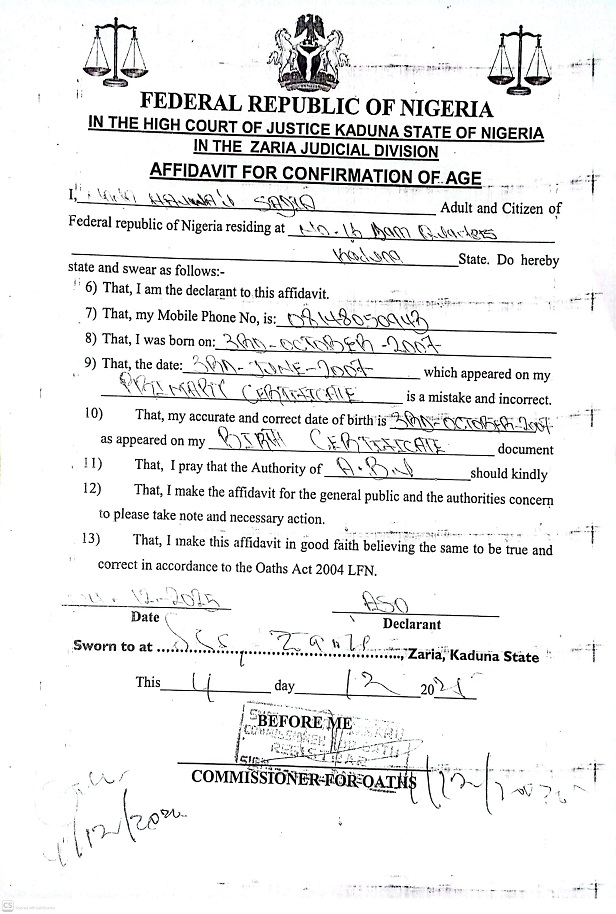 FEDERAL REPUBLIC OF NIGERIA
IN THE HIGH COURT OF JUSTICE KADUNA STATE OF NIGERIA
IN THE ZARIA JUDICIAL DIVISION
AFFIDAVIT FOR CONFIRMATION OF AGE
I, SADIQ Adult and Citizen of
Federal republic of Nigeria residing at No. 16 Dam Quarters
Kaduna State. Do hereby
state and swear as follows:-
6) That, I am the declarant to this affidavit.
7) That, my Mobile Phone No, is: 08148050943
8) That, I was born on: 3RD-OCTOBER-2007
9) That, the date: 3RD-JUNE-2007 which appeared on my
PRIMARY CERTIFICATE is a mistake and incorrect.
10) That, my accurate and correct date of birth is 3RD-OCTOBER-2007
as appeared on my BIRTH CERTIFICATE document
11) That, I pray that the Authority of A.B.U should kindly
12) That, I make the affidavit for the general public and the authorities concern
to please take note and necessary action.
13) That, I make this affidavit in good faith believing the same to be true and
correct in accordance to the Oaths Act 2004 LFN.
12-2025
Date
Declarant
Sworn to at ..., Zaria, Kaduna State
This day 12 20
BEFORE ME
REGISTRAR
COMMISSIONER-FOR-OATHS
CS